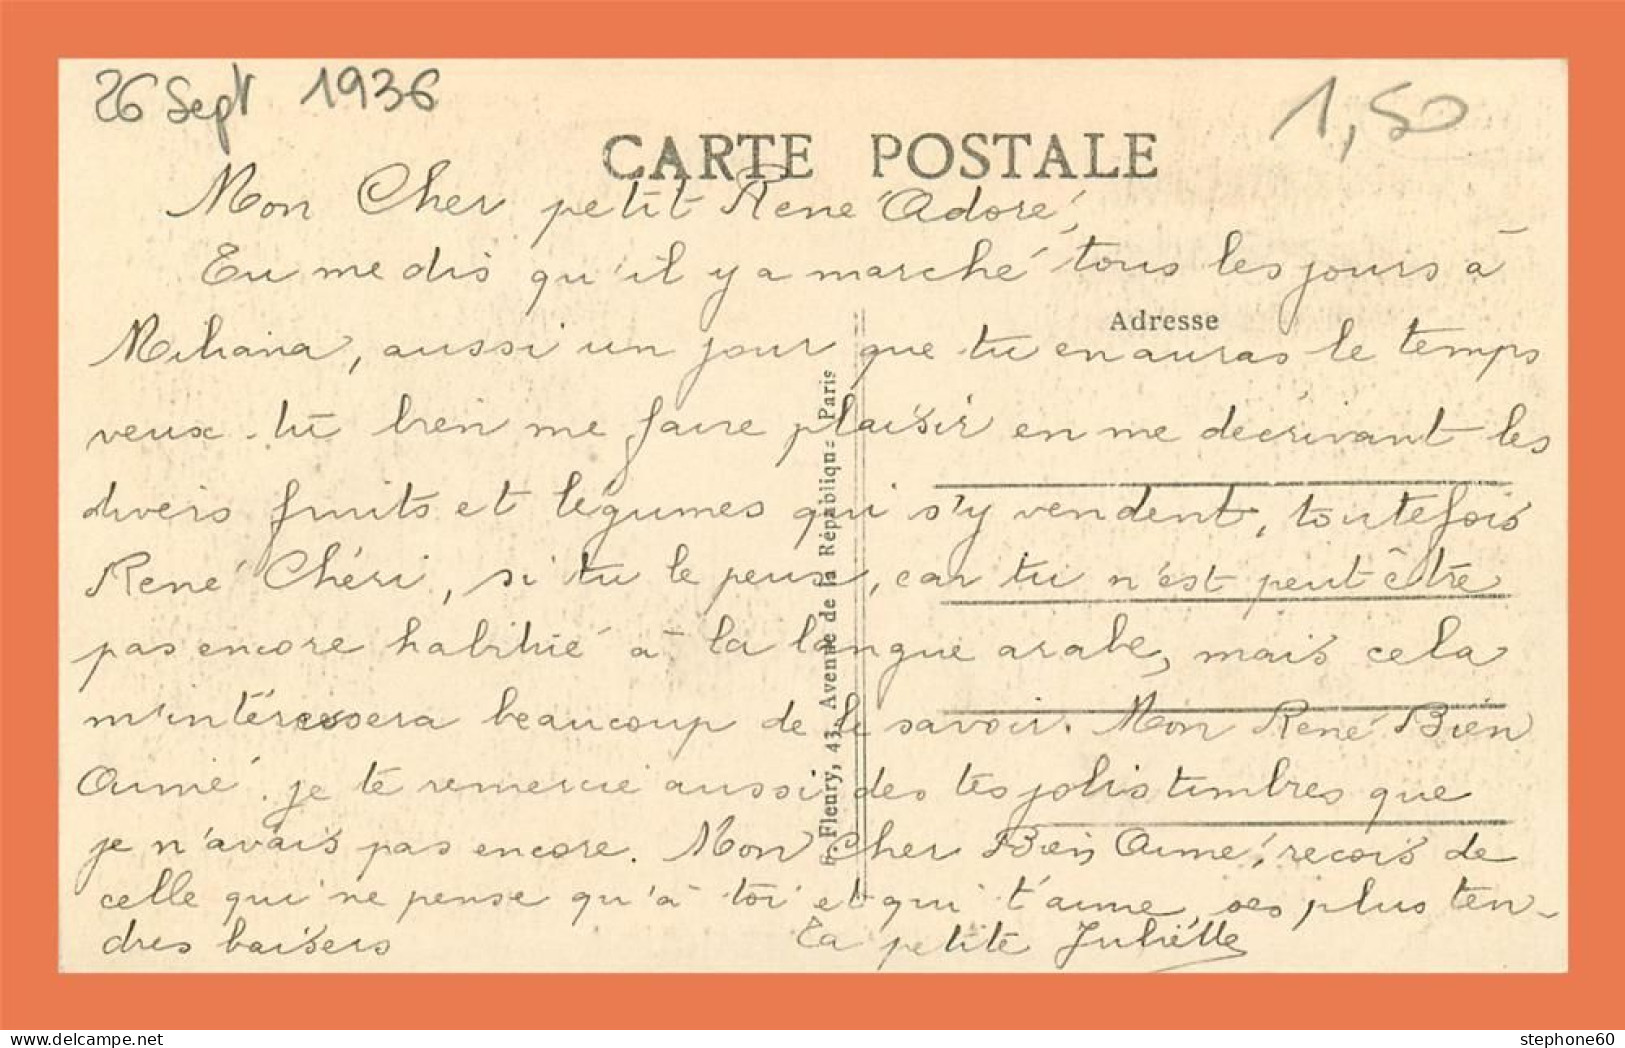 26 Sept 1936
1,50
CARTE POSTALE
Mon Cher petit René Adoré,
Tu me dis qu'il y a marché tous les jours à
Adresse
Miliana, aussi un jour que tu en auras le temps
veux-tu bien me faire plaisir en me décrivant les
divers fruits et légumes qui s'y vendent, toutefois
René Chéri, si tu le peux, car tu n'est peut être
pas encore habitué à la langue arabe, mais cela
m'intéressera beaucoup de le savoir. Mon René Bien
Aimé je te remercie aussi des tes jolis timbres que
je n'avais pas encore. Mon Cher Bien Aimé, reçois de
celle qui ne pense qu'à toi et qui t'aime, ses plus ten-
dres baisers
Ta petite Juliette
Fleury, 43, Avenue de la République - Paris
stephone60